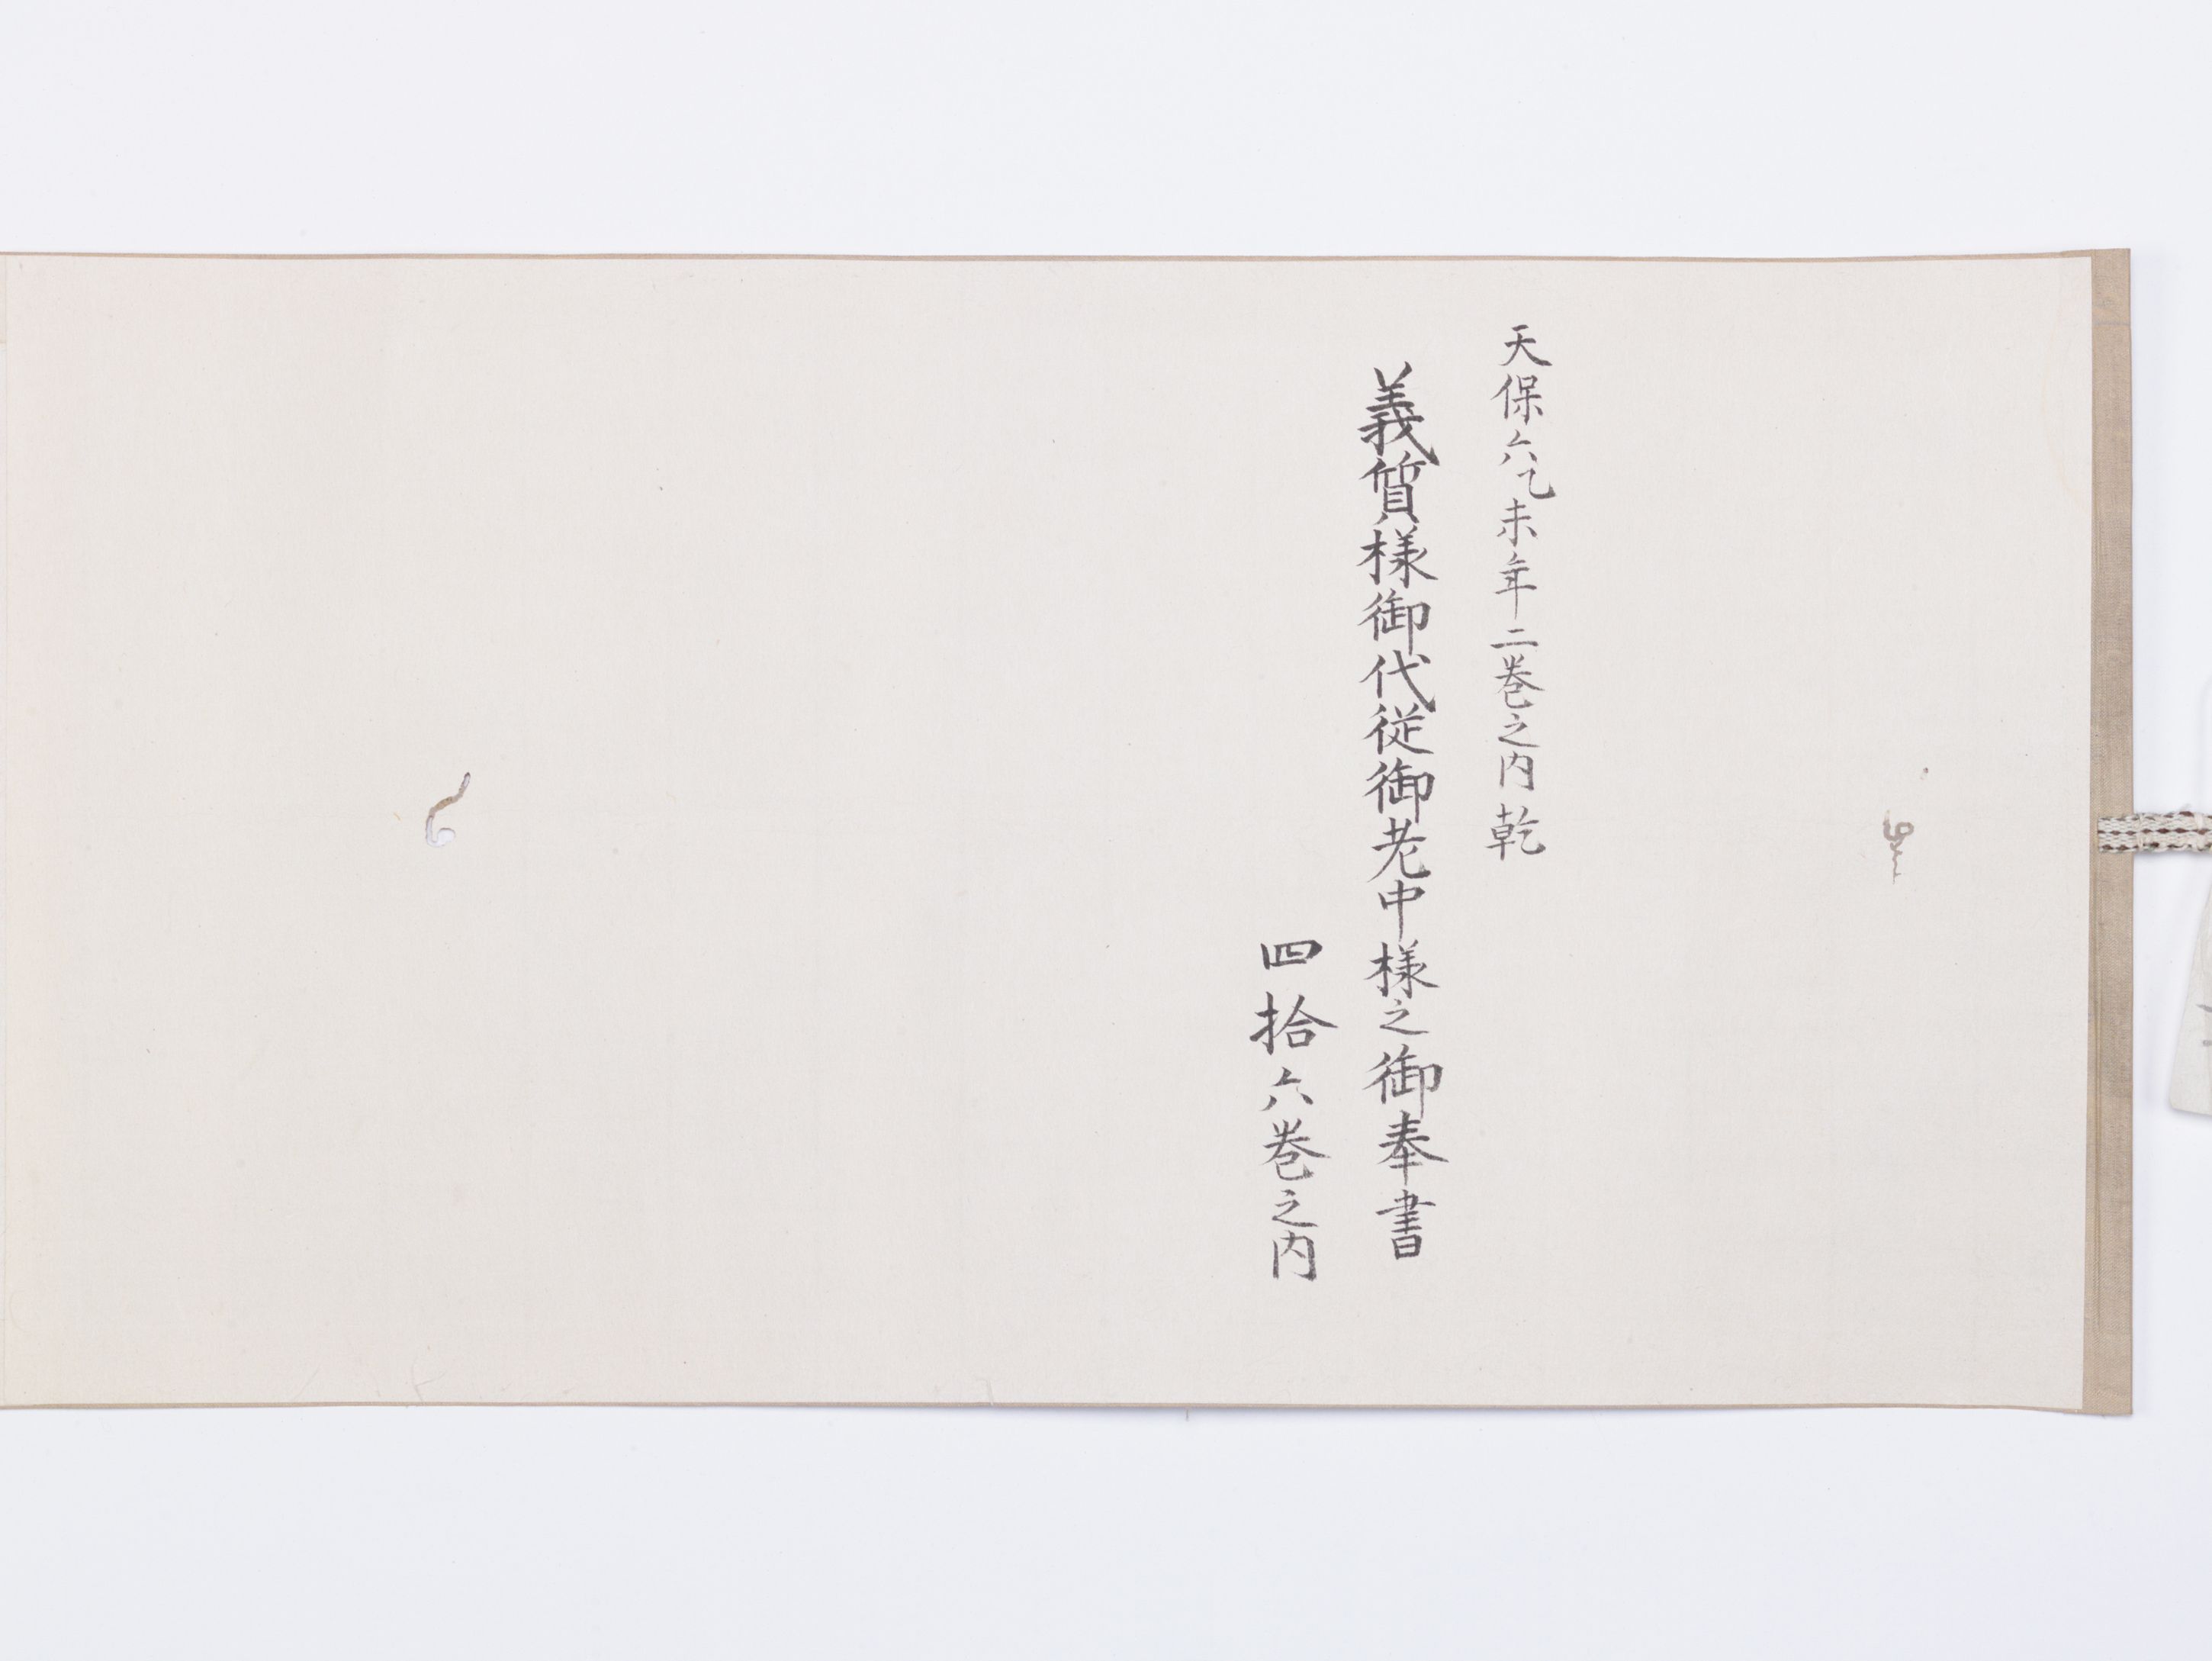 天保六乙未年二巻之内乾
義質様御代従御老中様之御奉書
四拾六巻之内